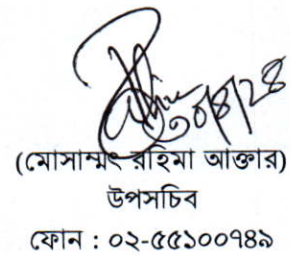 ৩০/৪/২৪
(মোসাম্মৎ রহিমা আক্তার)
উপসচিব
ফোন : ০২-৫৫১০০৭৪৯